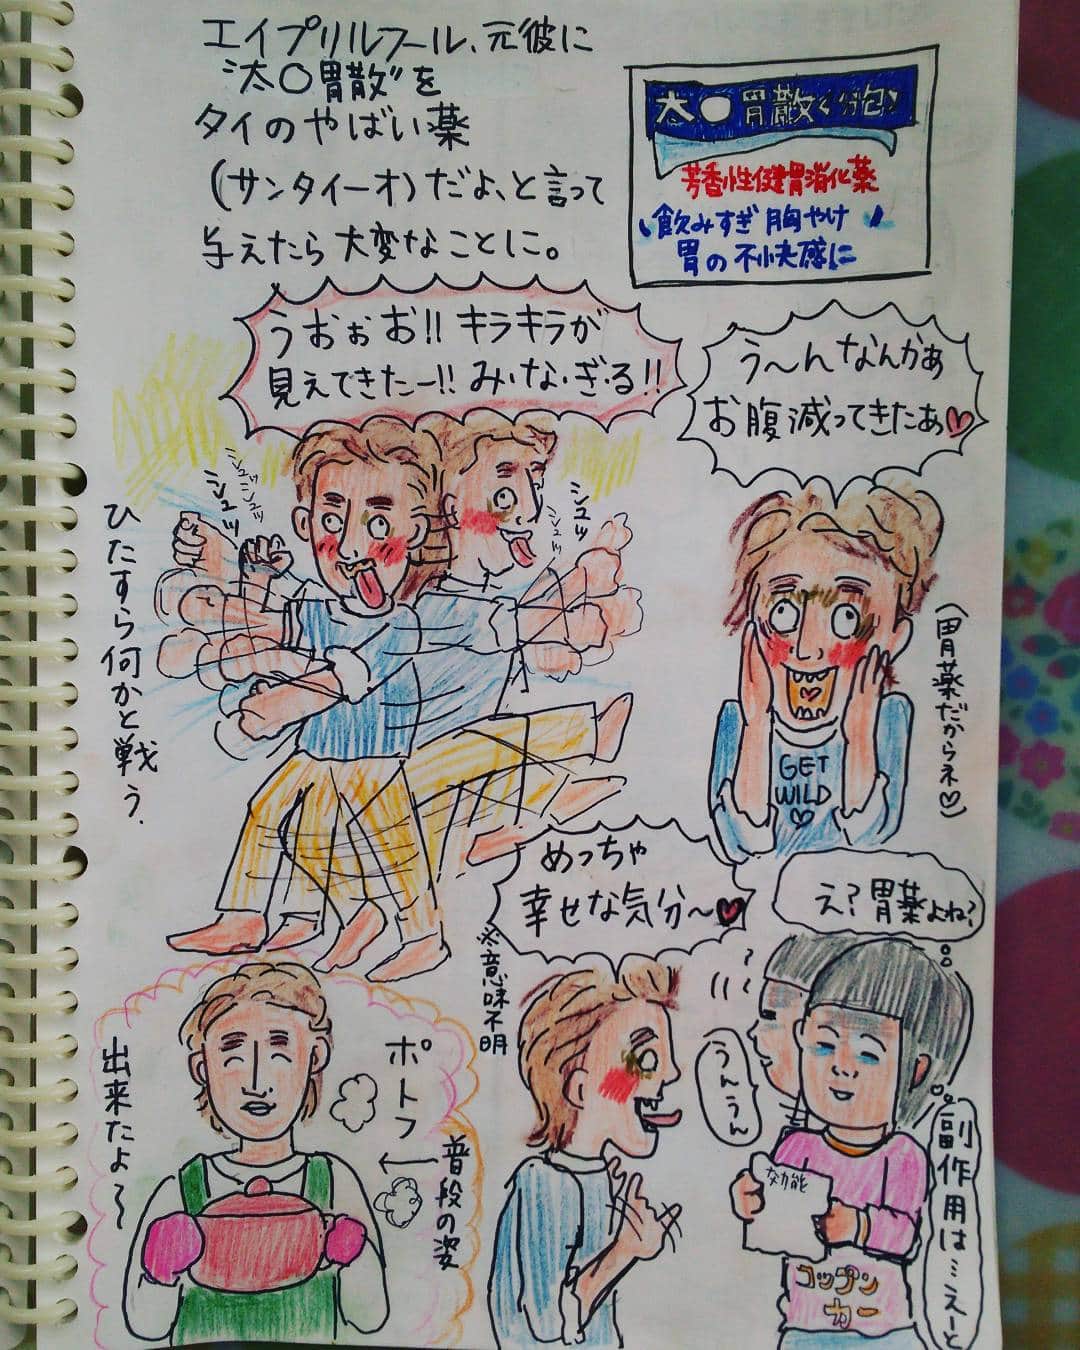 エイプリルフール、元彼に
"汰〇胃散"を
タイのやばい薬
(サンタイーオ)だよ、と言って
与えたら大変なことに。
太〇胃散〈分包〉
芳香性健胃消化薬
飲みすぎ胸やけ
胃の不快感に
うおぉお!!キラキラが
見えてきたー!!み・な・ぎ・る!!
う〜んなんかぁ
お腹減ってきたあ♡
シュッ
シュッ
シュッ
シュッ
シュッ
シュッ
シュッ
ひたすら何かと戦う.
GET
WILD
♡
(胃薬だからネ♡)
めっちゃ
幸せな気分〜♥
※意味不明
え?胃薬よね?
?
うんうん
効能
副作用は…えーと
コップン
カー
ポトフ
←普段の姿
出来たよ〜